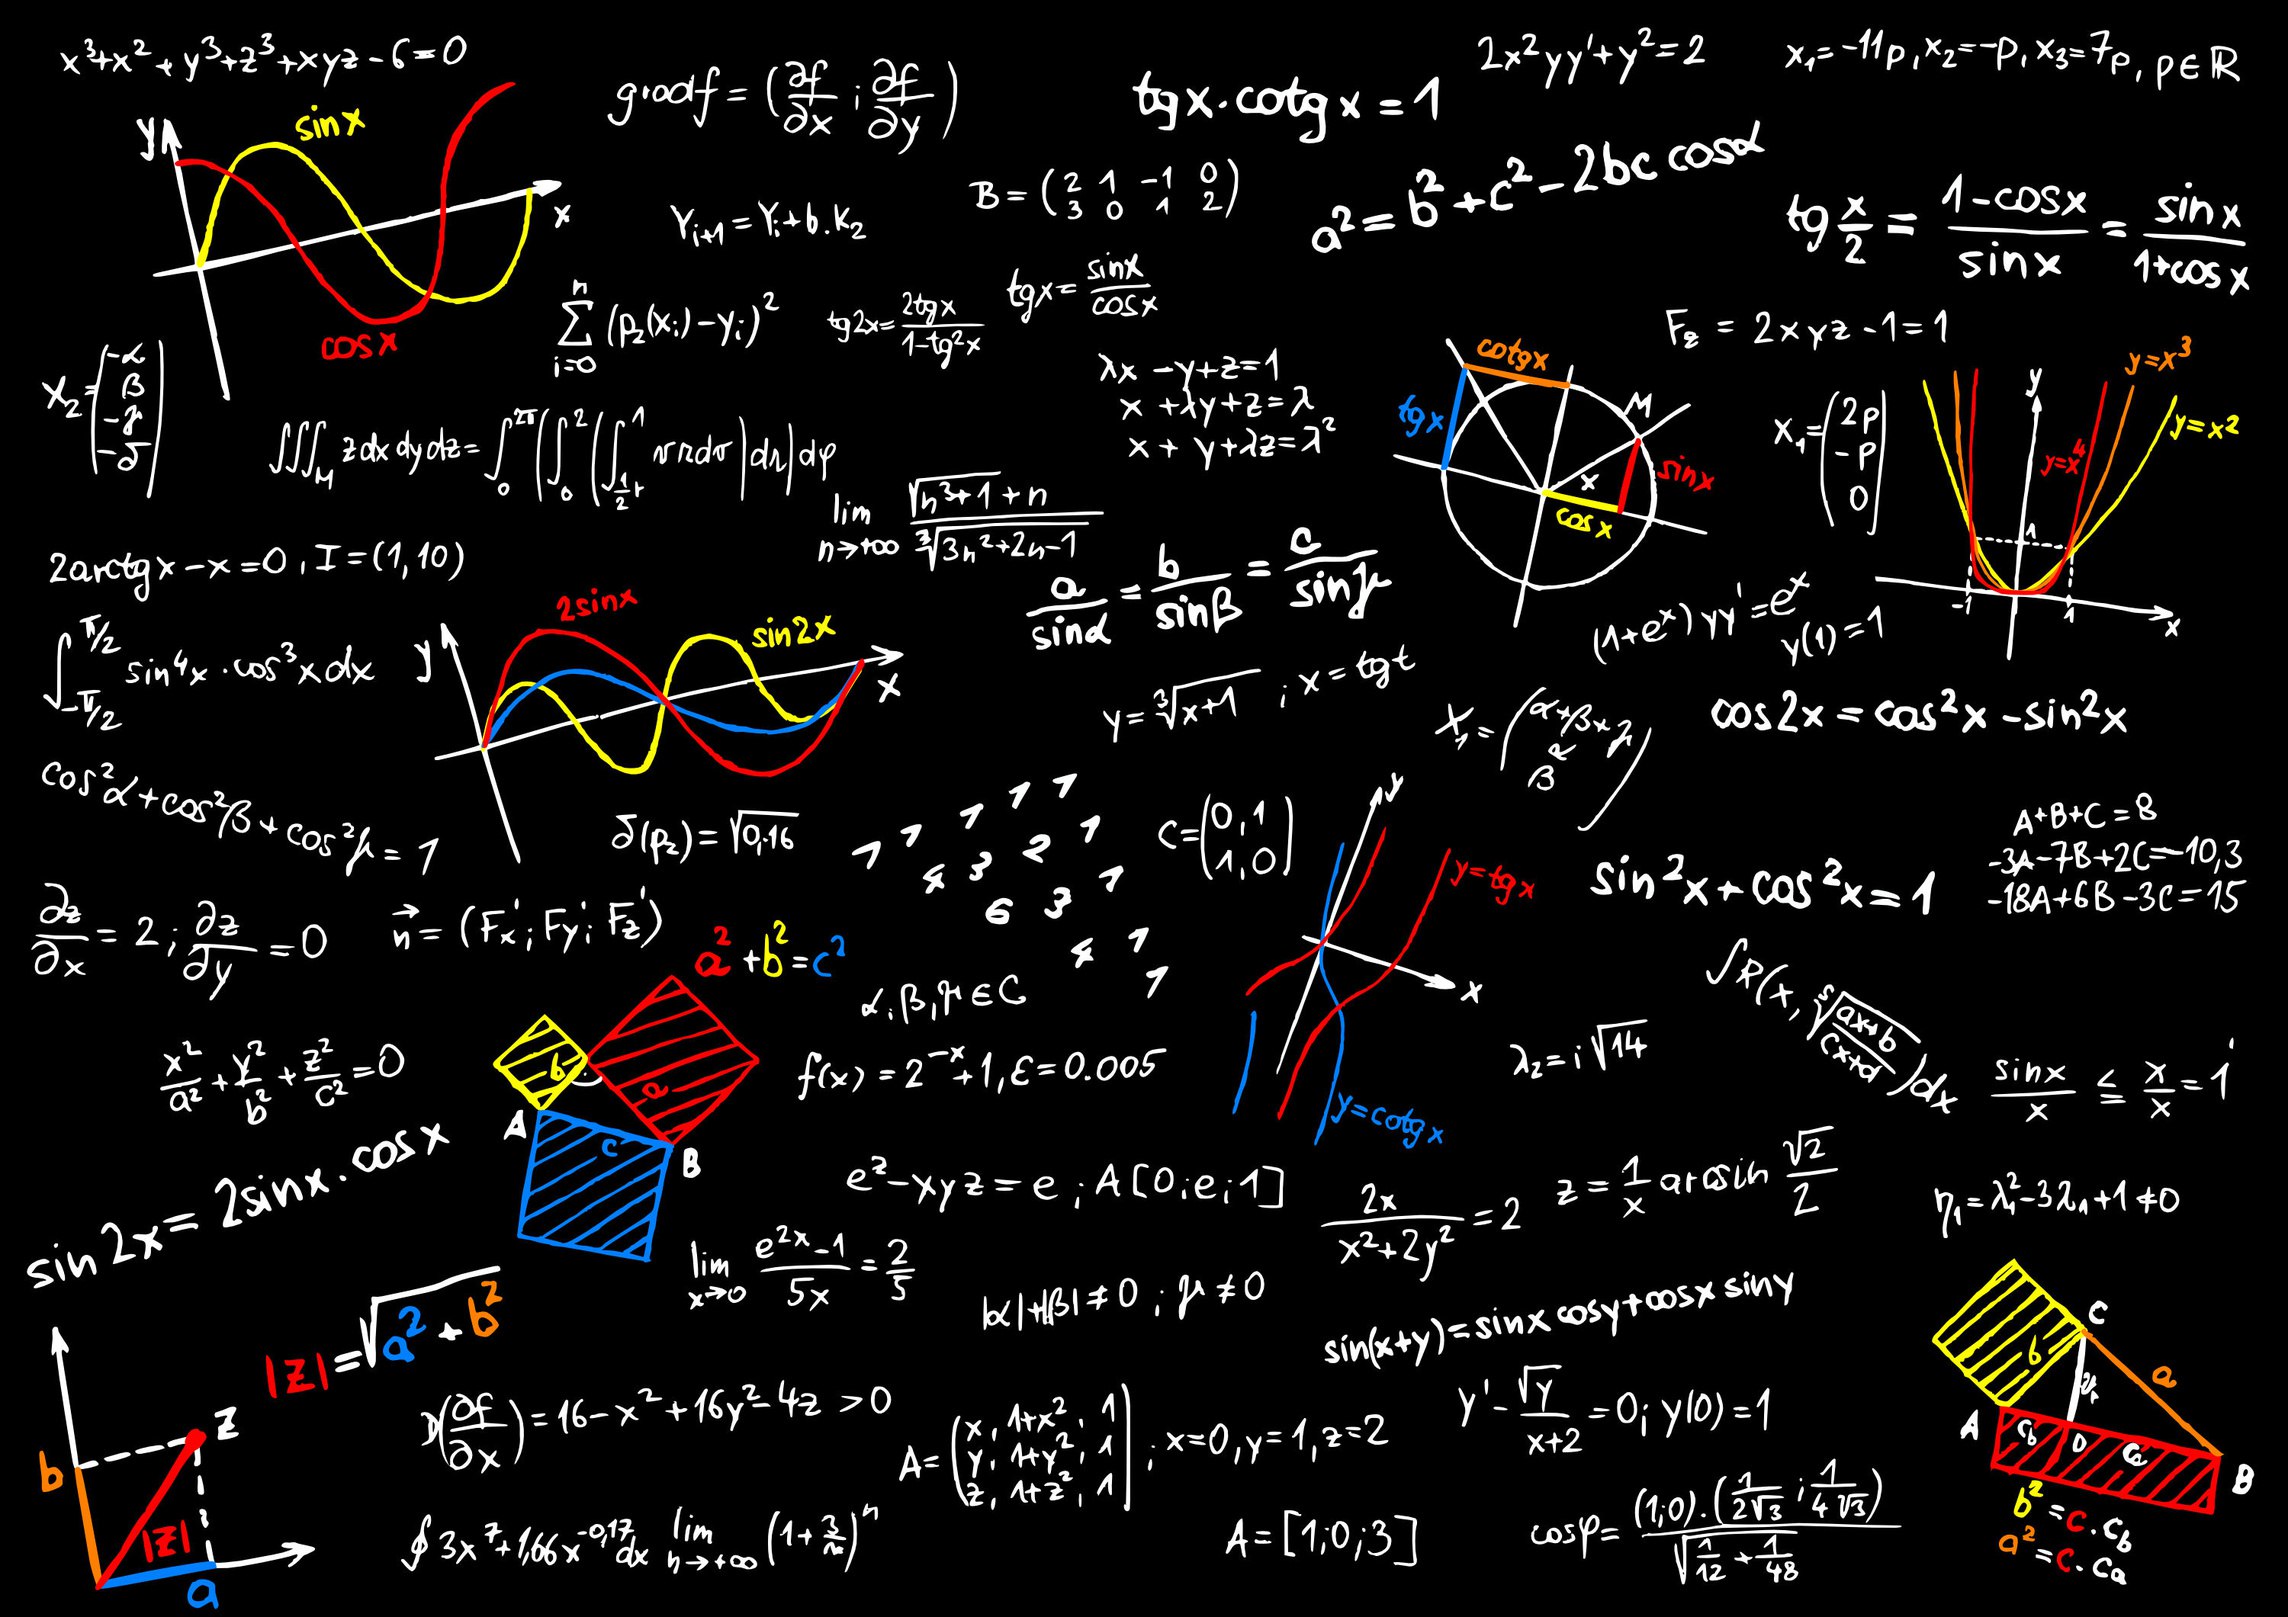 x³+x²+y³+z³+xyz-6=0
gradf = (∂f/∂x ; ∂f/∂y)
tgx.cotgx=1
2x²yy'+y²=2
x₁=-11p, x₂=-p, x₃=7p, p∈ℝ
y
sinx
x
cosx
Yᵢ₊₁=Yᵢ+b.K₂
B=(2 1 -1 0
3 0 1 2)
a²=b²+c²-2bc cosα
tg x/2 = 1-cosx/sinx = sinx/1+cosx
∑ⁿᵢ₌₀ (p₂(xᵢ)-yᵢ)²
tg2x=2tgx/1-tg²x
tgx=sinx/cosx
F₂ = 2xyz-1=1
X₂=(-α
β
-γ
-δ)
λx-y+z=1
x+λy+z=λ
x+y+λz=λ²
cotgx
tgx
M
sinx
x
cosx
X₁=(2p
-p
0)
y
y=x³
y=x²
y=x⁴
1
-1
1
x
∫∫∫_M zdxdydz=∫₀^2π(∫₀²(∫_½r^1 vrdv)dr)dφ
lim n→+∞ √n³+1+n/∛3n²+2n-1
2arctgx-x=0, I=(1,10)
a/sinα=b/sinβ=c/sinγ
(1+eˣ)yy'=eˣ
y(1)=1
∫_-π/2^π/2 sin⁴x.cos³xdx
y
2sinx
sin2x
x
y=∛x+1 ; x=tgt
X₁=(α+β+γ
α
β)
cos2x=cos²x-sin²x
cos²α+cos²β+cos²γ=1
δ(p₂)=√0,16
1 1 1 1 1
4 3 2 1
6 3 1
4 1
1
C=(0,1
1,0)
y
y=tgx
x
y=cotgx
sin²x+cos²x=1
A+B+C=8
-3A-7B+2C=-10,3
-18A+6B-3C=15
∂z/∂x=2; ∂z/∂y=0
n⃗=(F'x; Fy; F'z)
a²+b²=c²
b
a
A
c
B
α,β,γ∈C
∫R(x, ⁵√ax+b/cx+d)dx
x²/a²+y²/b²+z²/c²=0
f(x)=2⁻ˣ+1, ε=0.005
λ₂=i√14
sinx/x ≤ x/x=1
sin2x=2sinx.cosx
e^z-xyz=e; A[0;e;1]
2x/x²+2y²=2
z=1/x arcsin √2/2
η₁=λ₁²-3λ₁+1≠0
lim x→0 e²ˣ-1/5x=2/5
|α|+|β|≠0 ; γ≠0
sin(x+y)=sinxcosy+cosxsiny
|z|=√a²+b²
z
b
|z|
a
D(∂f/∂x)=16-x²+16y²-4z>0
A=(x, 1+x², 1
y, 1+y², 1
z, 1+z², 1) ; x=0, y=1, z=2
y'-√y/x+2=0; y(0)=1
C
b
a
A
c_b
D
c_a
B
b²=c.c_b
a²=c.c_a
∮3x⁷+1,66x^-0,17dx
lim n→+∞ (1+3/n)ⁿ
A=[1;0;3]
cosφ=(1;0).(1/2√3 ; 1/4√3)/√1/12+1/48